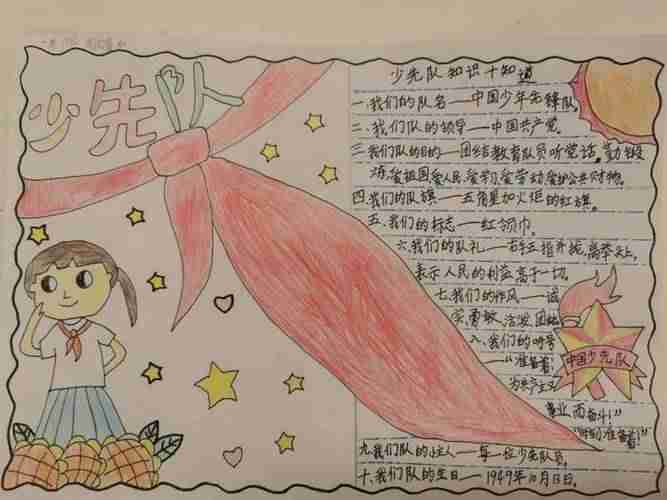 少先队
少先队知识十知道
一.我们的队名——中国少年先锋队
二、我们队的领导——中国共产党。
三.我们队的目的——团结教育队员听党话。勤
炼,爱祖国,爱人民,爱学习,爱劳动,爱护公共财物。
四.我们的队旗——五角星加火炬的红旗。
五.我们的标志——红领巾。
六.我们的队礼——右手五指并拢,高举头上,
表示人民的利益高于一切。
七.我们的作风——诚
实,勇敢,活泼,团结
八、我们的呼号
——“准备着!
为共产主义
事业而奋斗!”
“时刻准备着!”
中国少先队
九.我们队的小主人——每一位少先队员。
十、我们队的生日——1949年10月13日。